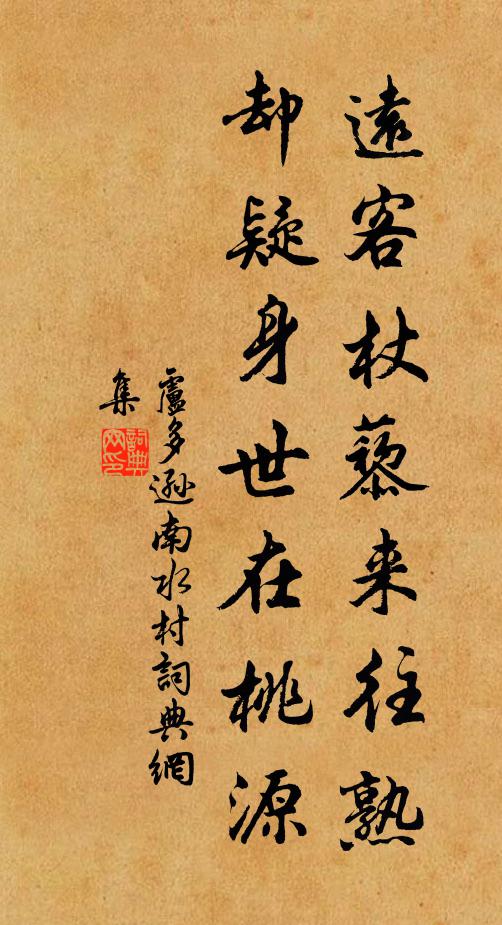 遠客杖藜来往熟
却疑身世在桃源
盧多遜南水村詞典網
集
詞典网印